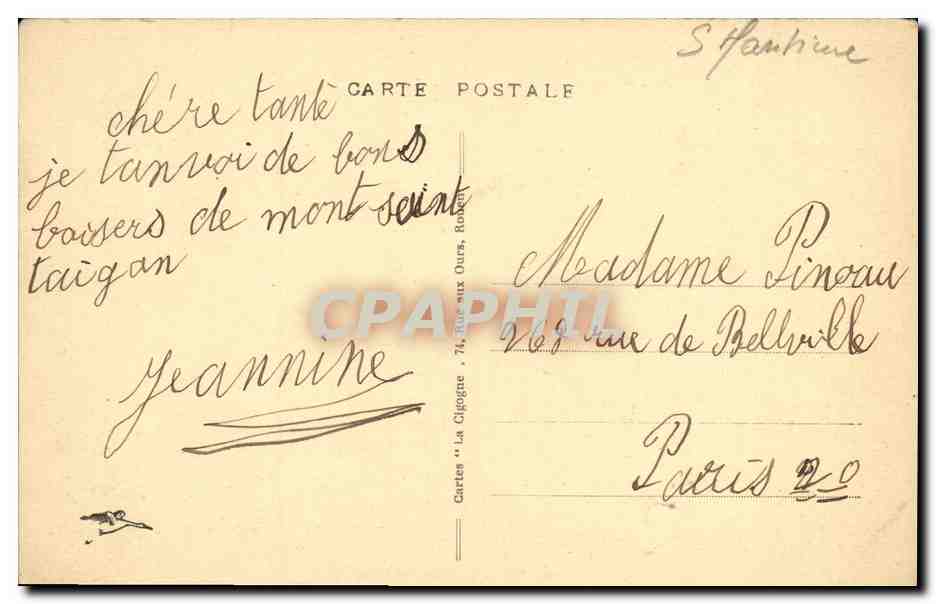 S Maritime
CARTE POSTALE
chére tante
je tanvoi de bons
baisers de mont saint
taigan
Jeannine
Cartes "La Cigogne, 74, Rue aux Ours, Rouen
Madame Pineau
268 rue de Bellville
Paris 20
CPAPHIL